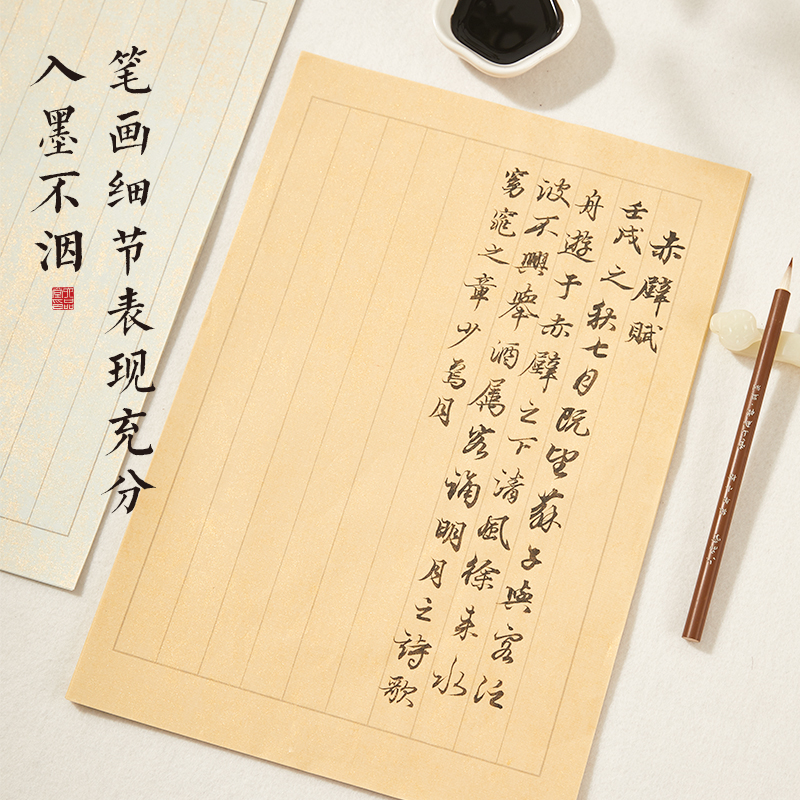 笔画细节表现充分
入墨不洇
赤壁賦
壬戌之秋七月既望蘇子與客泛
舟遊于赤壁之下清風徐来水
波不興舉酒屬客誦明月之詩歌
窈窕之章少焉月